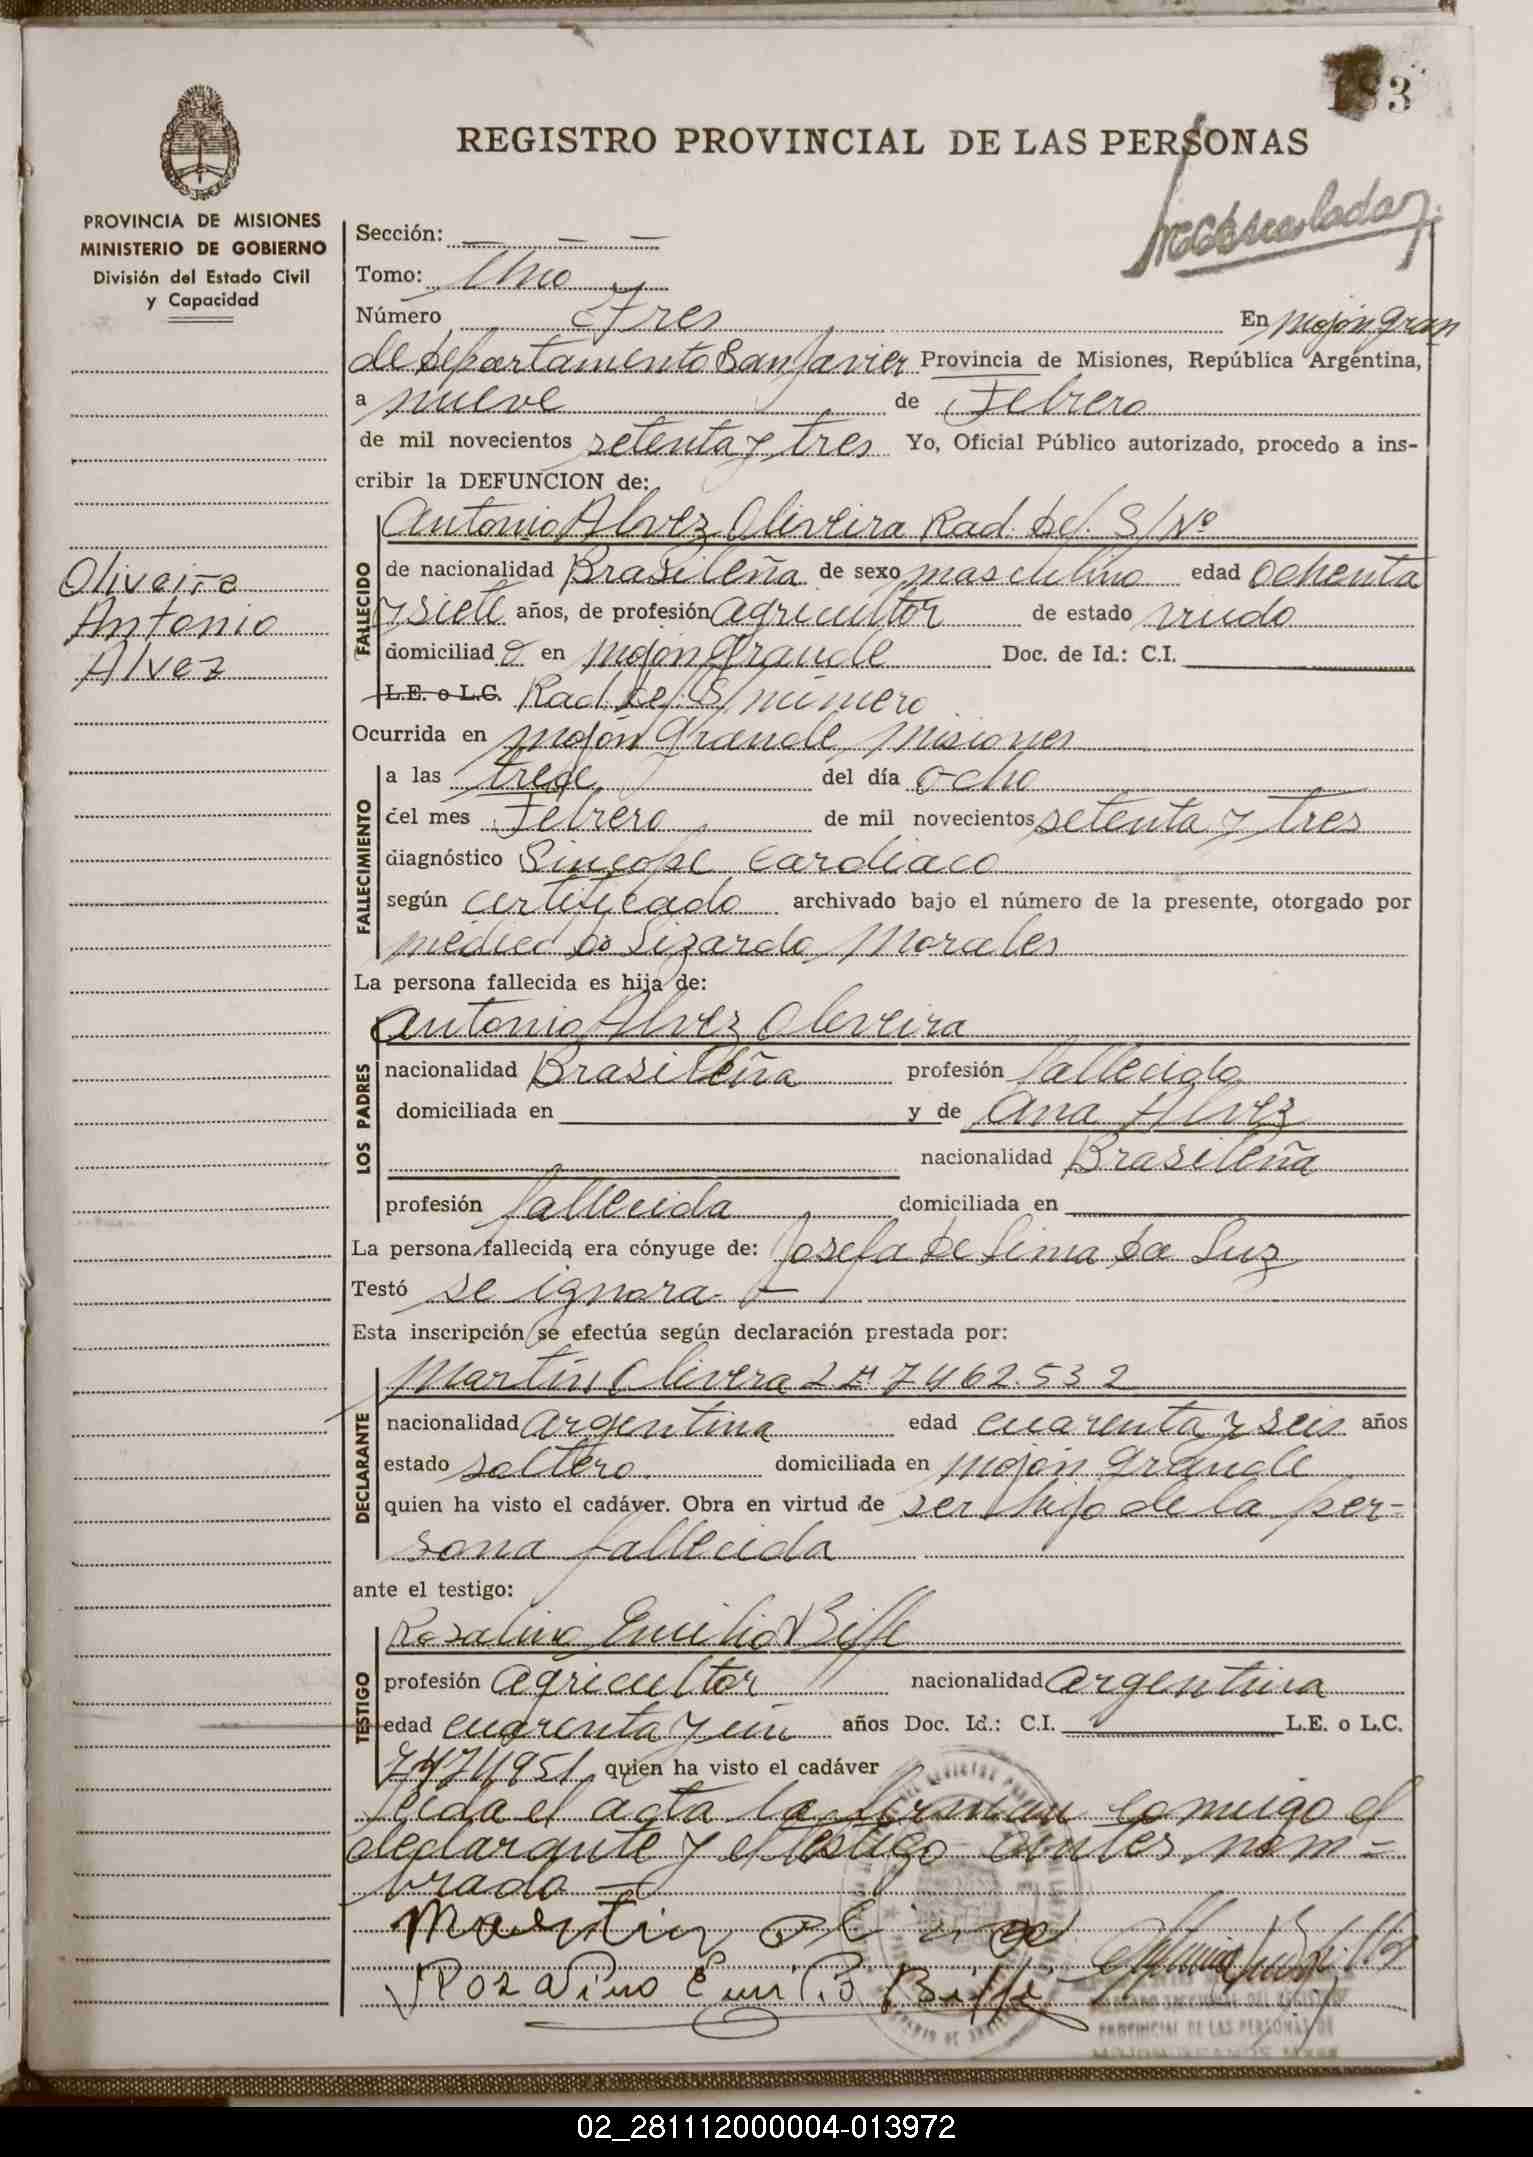 183
REGISTRO PROVINCIAL DE LAS PERSONAS
PROVINCIA DE MISIONES
MINISTERIO DE GOBIERNO
División del Estado Civil
y Capacidad
Sección: — — —
Tomo: Uno
Número Tres En Mojón Gran
de Departamento San Javier Provincia de Misiones, República Argentina,
a nueve de Febrero
de mil novecientos setenta y tres Yo, Oficial Público autorizado, procedo a ins-
cribir la DEFUNCION de:
Antonio Alvez Oliveira Rad. De/. S/Nº
Oliveira
Antonio
Alvez
FALLECIDO
de nacionalidad Brasileña de sexo masculino edad ochenta
y siete años, de profesión agricultor de estado viudo
domiciliado en Mojón Grande Doc. de Id.: C.I.
L.E. o L.C. Rad. De/. S/número
Ocurrida en Mojón Grande, Misiones
FALLECIMIENTO
a las trece del día ocho
del mes Febrero de mil novecientos setenta y tres
diagnóstico Sincope Cardiaco
según certificado archivado bajo el número de la presente, otorgado por
médico Dr Lizardo Morales
La persona fallecida es hija de:
LOS PADRES
Antonio Alvez Oliveira
nacionalidad Brasileña profesión fallecido
domiciliada en y de Ana Alvez
nacionalidad Brasileña
profesión fallecida domiciliada en
La persona fallecida era cónyuge de: Josefa de Lima da Luz
Testó se ignora. —
Esta inscripción se efectúa según declaración prestada por:
DECLARANTE
Martín Olivera L E. 7462.532
nacionalidad argentina edad cuarenta y seis años
estado soltero. domiciliada en Mojón Grande
quien ha visto el cadáver. Obra en virtud de ser hijo de la per=
sona fallecida
ante el testigo:
TESTIGO
Rosalino Emilio Biffe
profesión agricultor nacionalidad argentina
edad cuarenta y un años Doc. Id.: C.I. L.E. o L.C.
7474951 quien ha visto el cadáver
leida el acta la firman conmigo el
declarante y el testigo antes nom=
brado —
Martin
Rozalino Emilio Biffe
PROVINCIAL DE LAS PERSONAS DE
02_281112000004-013972